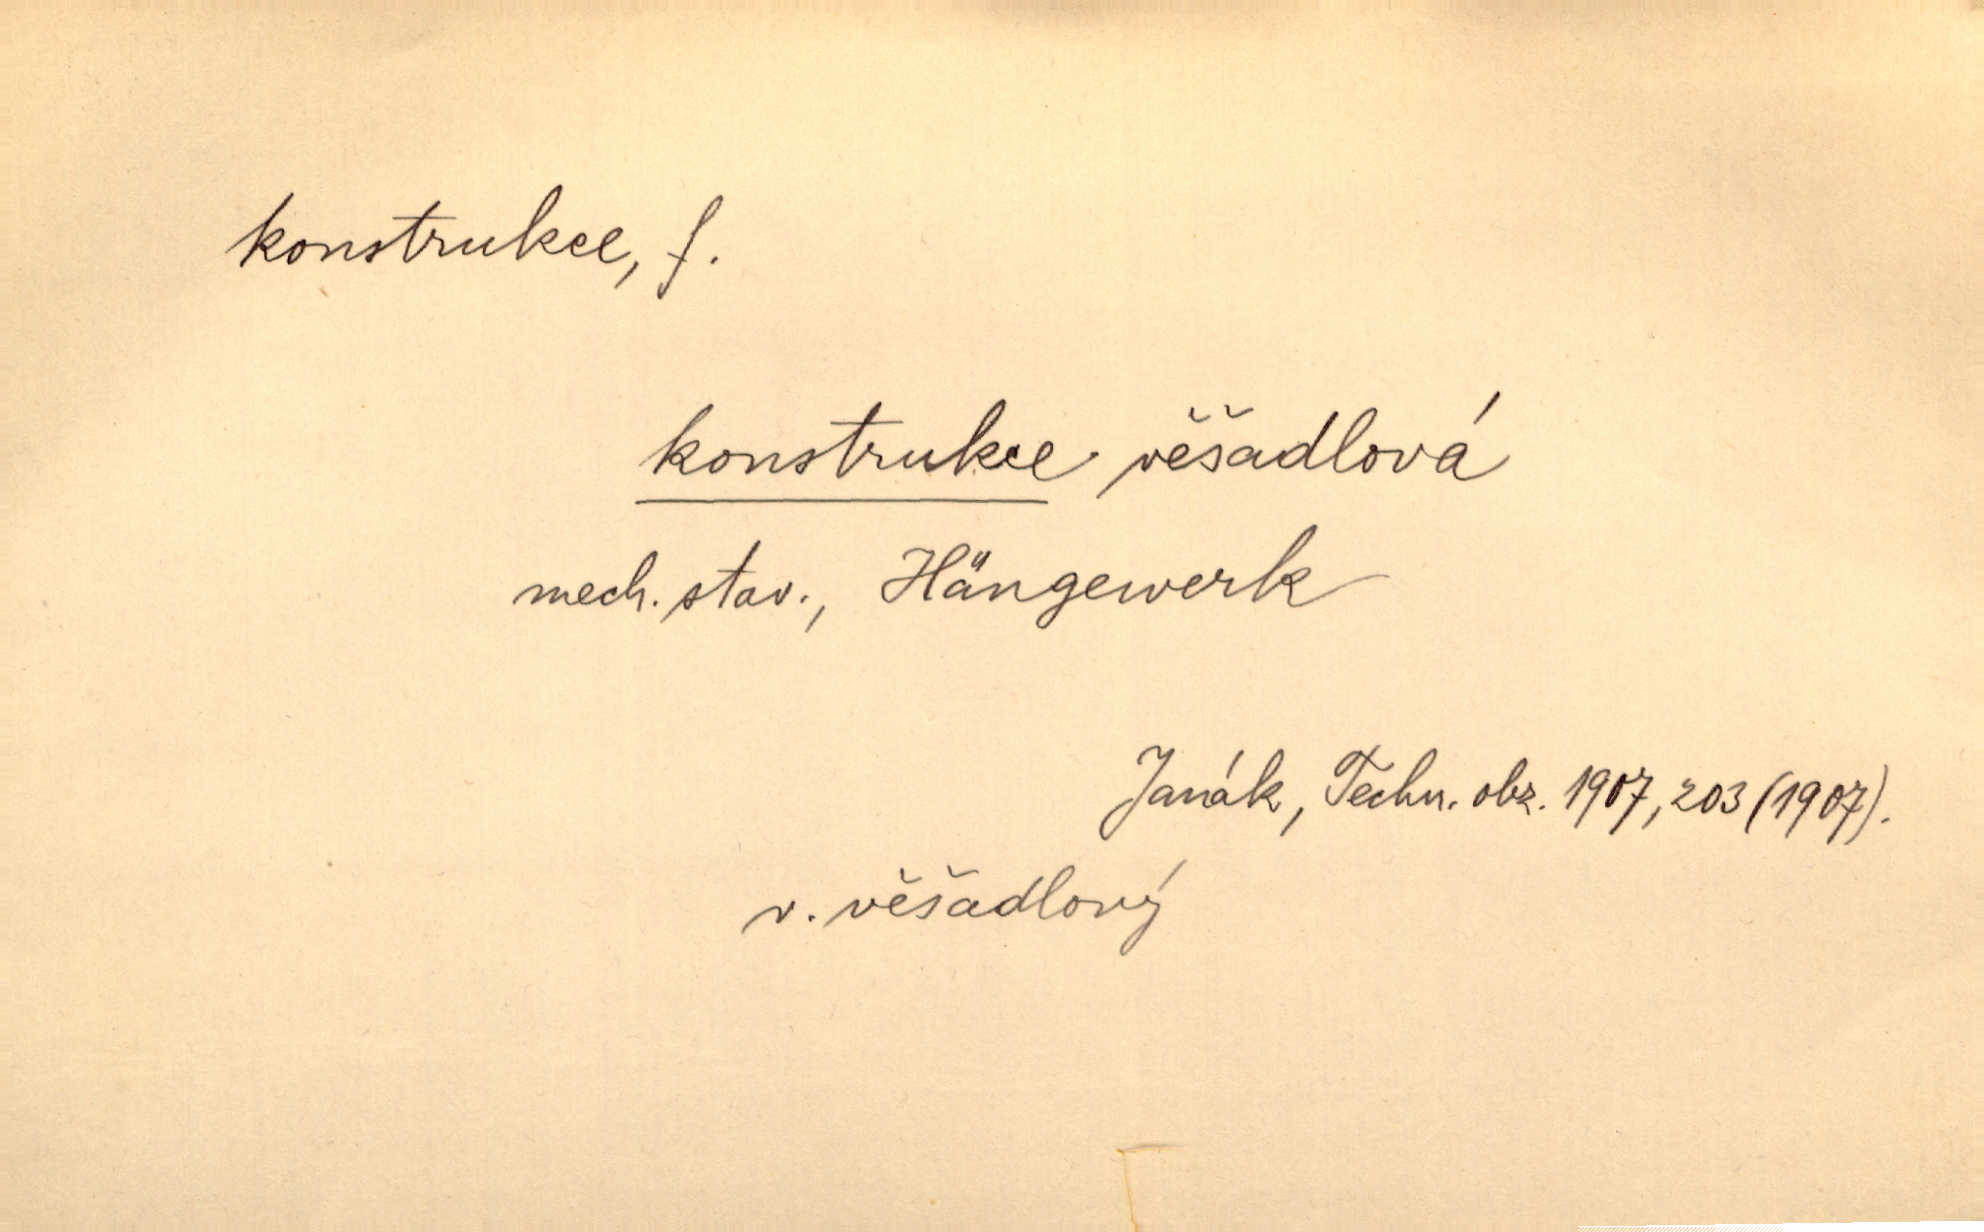 konstrukce, f.
konstrukce věšadlová
mech. stav., Hängewerk
Janák, Techn. obz. 1907, 203 (1907).
v. věšadlový